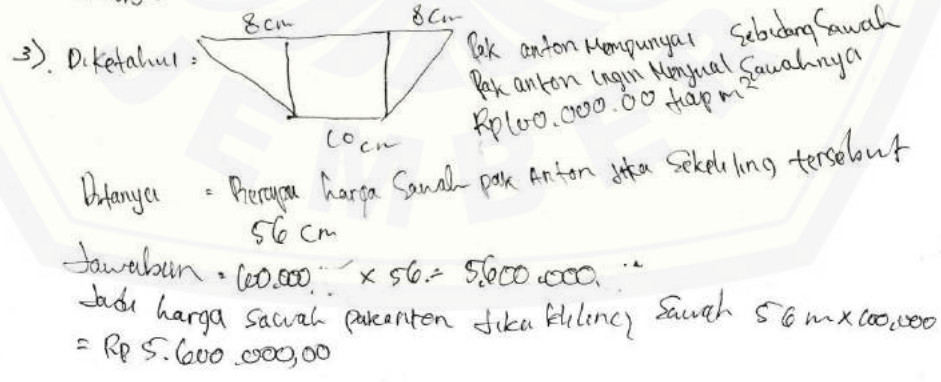 8 cm 8 cm
3). Diketahui : Pak anton Mempunyai Sebidang Sawah
Pak anton ingin Menjual Sawahnya
Rp 100.000.00 tiap m²
10 cm
Ditanya = Berapa harga Sawah pak Anton jika Sekeliling tersebut
56 cm
Jawaban = 100.000 x 56 = 5.600.000.
Jadi harga sawah pak anton jika keliling Sawah 56 m x 100,000
= Rp 5.600.000,00